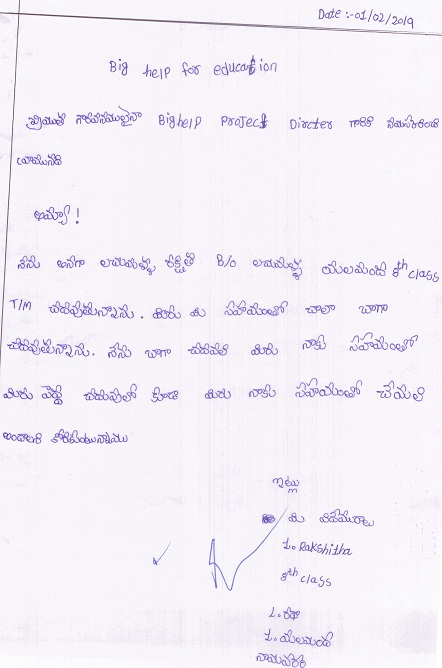 Date :-01/02/2019
Big help for education
ప్రియుత గౌరవనీయులైన Bighelp Project Dircter గారికి నమస్కరించి
వ్రాయునది
అమ్మా!
నేను అనగా లచుమళ్ళ రక్షిత B/o లచుమళ్ళ యలమంద 8th class
T/M చదువుతున్నాను. మీరు మీ సహాయంతో చాలా బాగా
చదువుతున్నాను. నేను బాగా చదవాలి మీరు నాకు సహాయంతో
మీరు పెద్ద చదువులో కూడా మీరు నాకు సహాయంతో చేయాలి
అందాలని కోరుకుంటున్నాము
ఇట్లు
మీ విదేయురాలు
L. Rakshitha
8th class
L. రమా
L. యలమంద